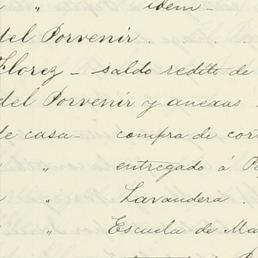 " idem -
del Porvenir .
Florez - saldo redito de
del Porvenir y anexas .
de casa - compra de cor
" " entregado á
" Lavandera .
" Escuela de Ma